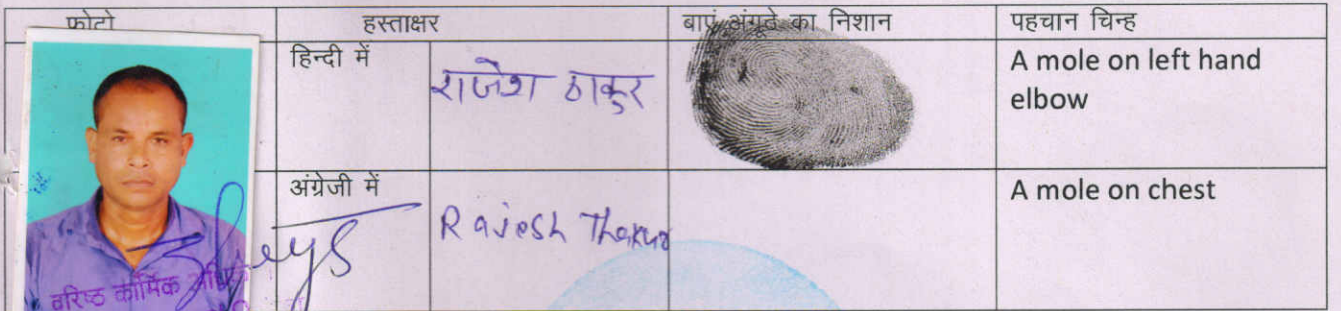 फोटो हस्ताक्षर बाएं अंगूठे का निशान पहचान चिन्ह
हिन्दी में राजेश ठाकुर A mole on left hand
elbow
अंग्रेजी में Rajesh Thakur A mole on chest
वरिष्ठ कार्मिक